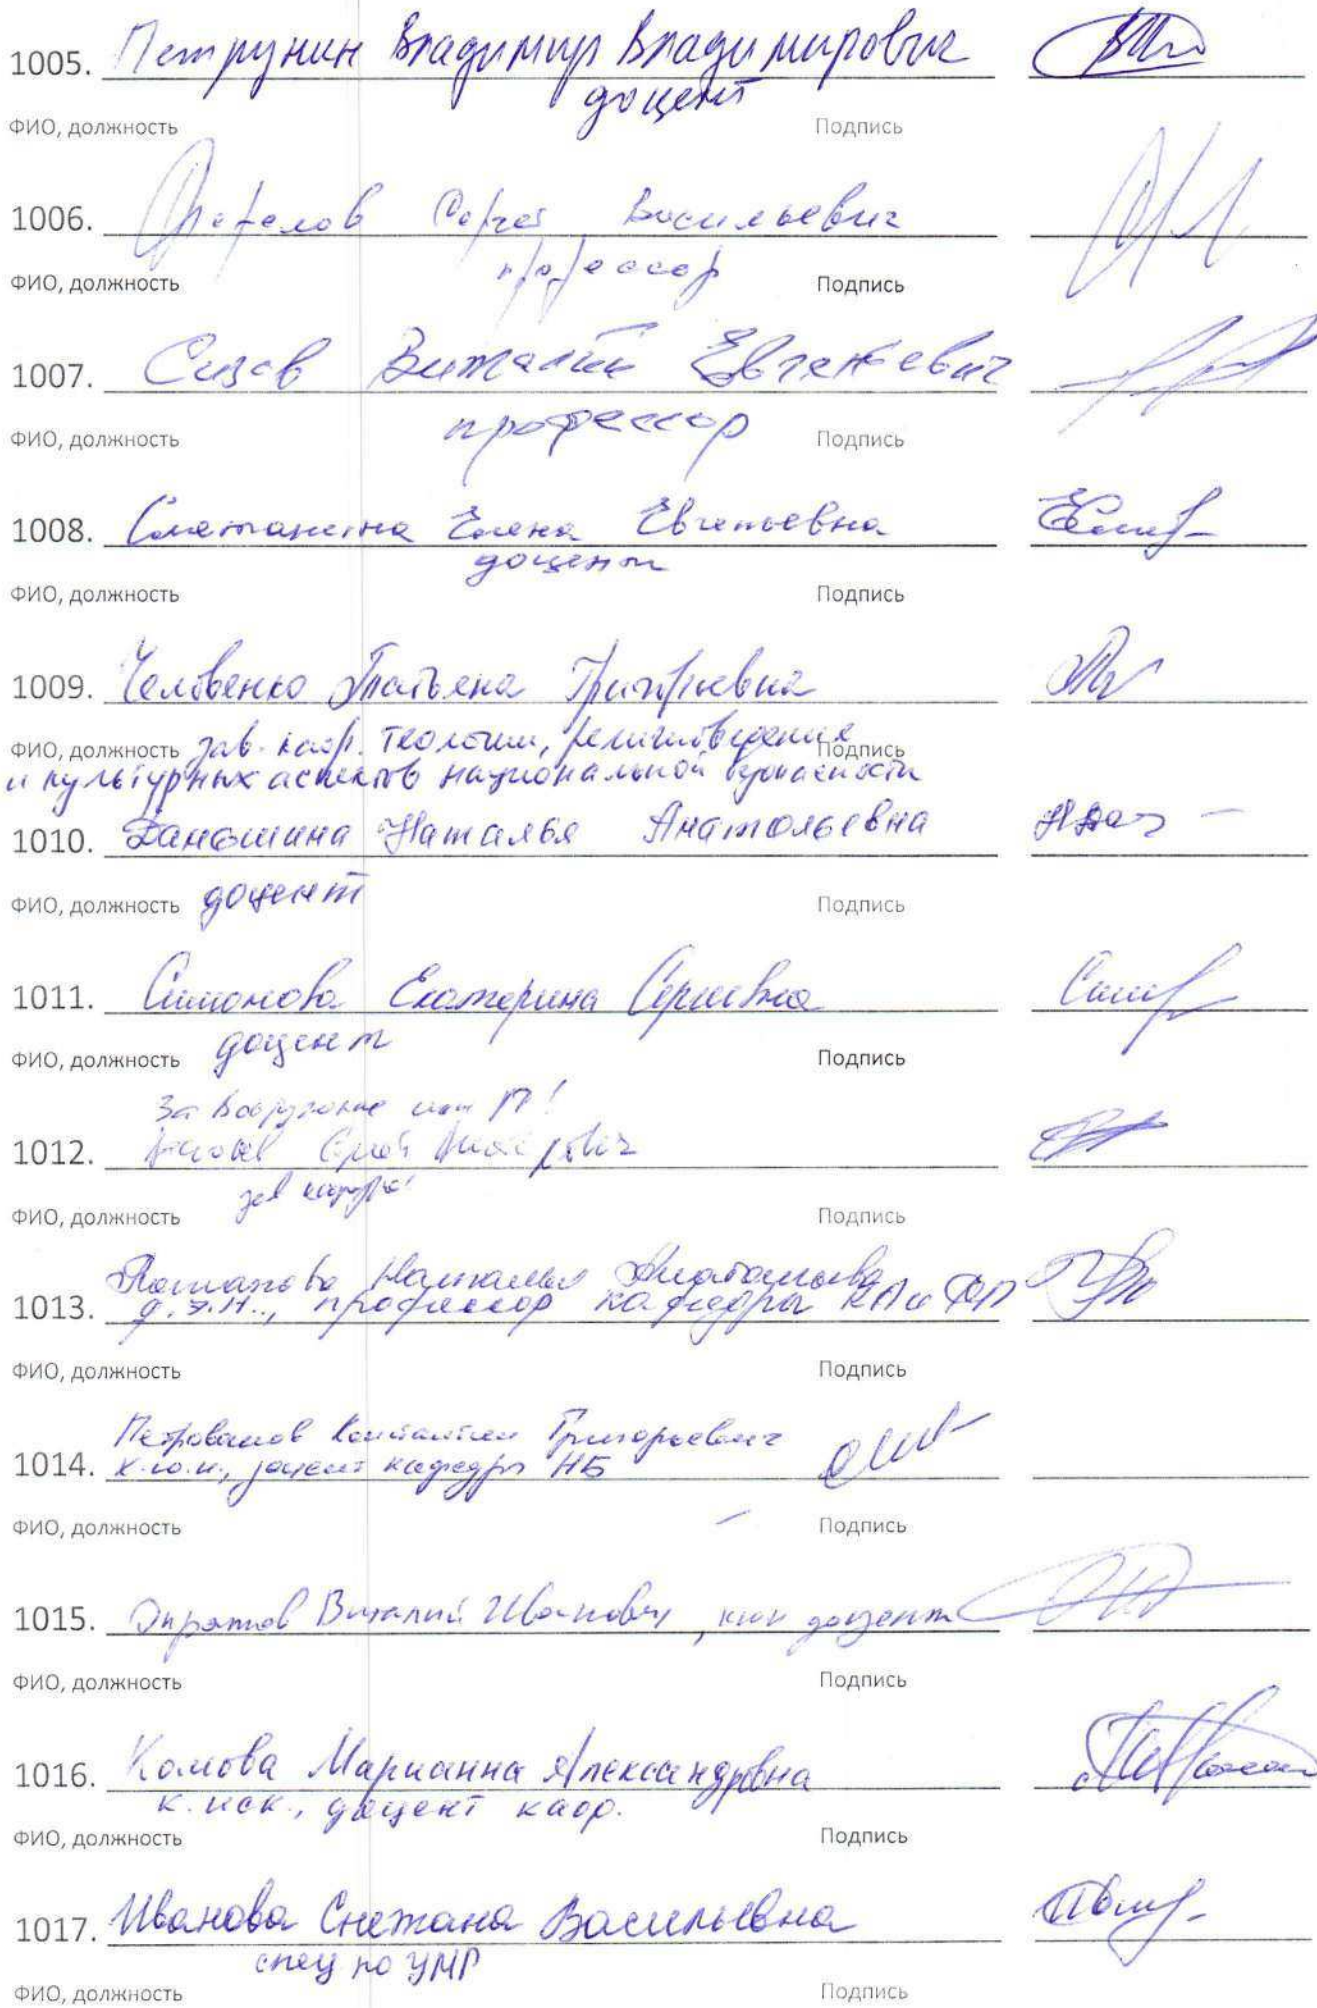 1005. Петрунин Владимир Владимирович
доцент
ФИО, должность Подпись
1006. Сергей Васильевич
профессор
ФИО, должность Подпись
1007. Сизов Виталий Евгеньевич
профессор
ФИО, должность Подпись
1008. Сметанина Елена Евгеньевна
доцент
ФИО, должность Подпись
1009. Человенко Татьяна Григорьевна
ФИО, должность зав. каф. теологии, религиоведения Подпись
и культурных аспектов национальной безопасности
1010. Даньшина Наталья Анатольевна
ФИО, должность доцент Подпись
1011. Симонова Екатерина Сергеевна
ФИО, должность доцент Подпись
За
1012.
зав
ФИО, должность Подпись
Наталья Анатольевна
1013. д.э.н., профессор кафедры
ФИО, должность Подпись
Григорьевич
1014. к.ю.н., доцент кафедры НБ
ФИО, должность Подпись
1015. Виталий Иванович, кюн доцент
ФИО, должность Подпись
1016. Комова Марианна Александровна
к. иск., доцент каф.
ФИО, должность Подпись
1017. Иванова Снежана Васильевна
спец по УМР
ФИО, должность Подпись